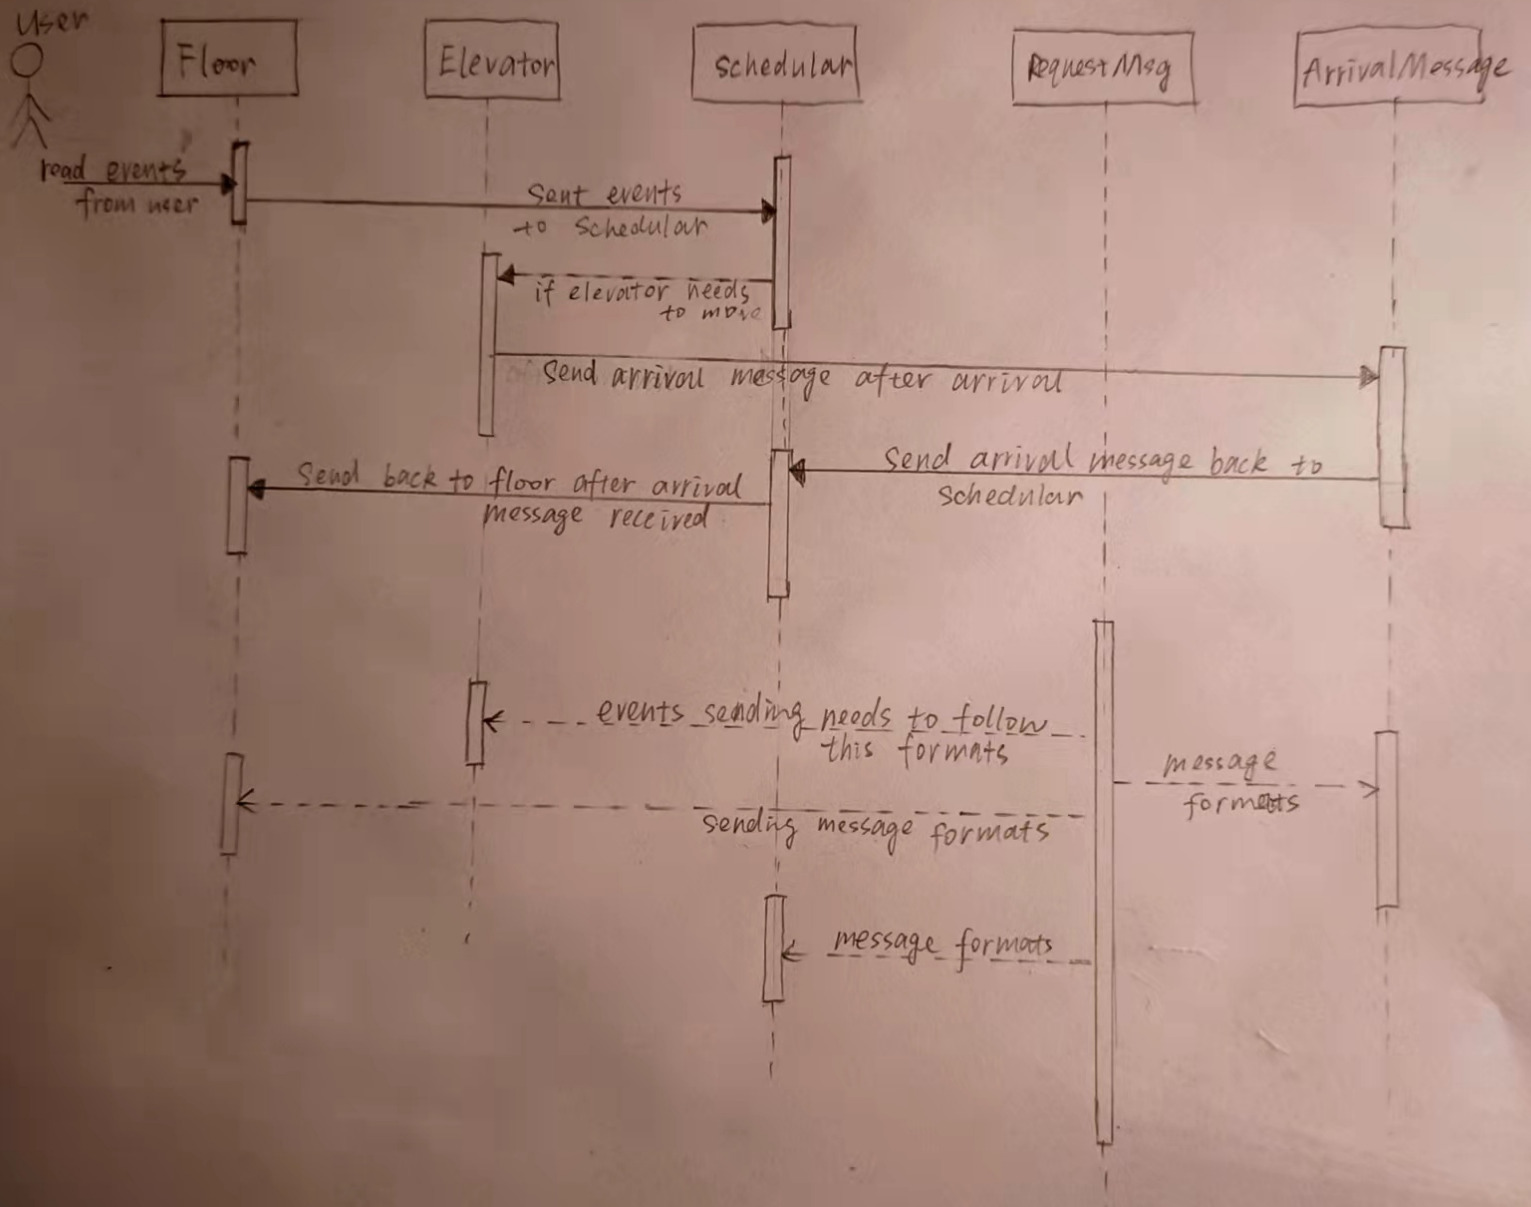 User
Floor
Elevator
Schedular
RequestMsg
ArrivalMessage
read events
from user
Sent events
to Schedular
if elevator needs
to move
Send arrival message after arrival
Send arrival message back to
Schedular
Send back to floor after arrival
message received
events sending needs to follow
this formats
message
formats
sending message formats
message formats